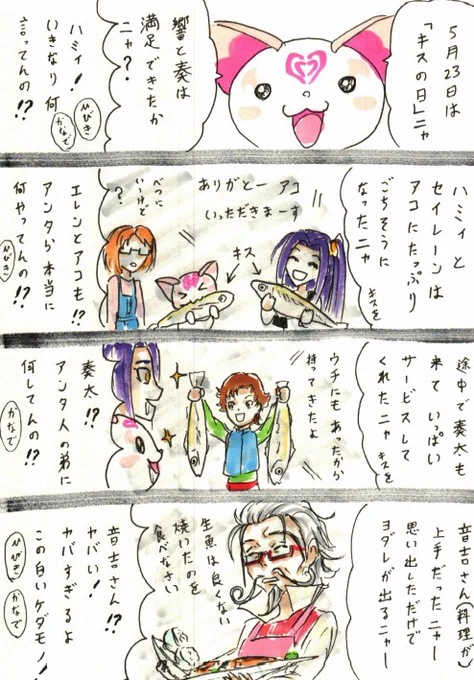 5月23日は
「キスの日」ニャ
響と奏は
満足できたか
ニャ?
ハミィ!
いきなり何
言ってんの!?
ひびき
かなで
ハミィと
セイレーンは
アコにたっぷり
キスを
ごちそうに
なったニャ
ありがとー アコ
いっただきまーす
キス
べつに
いーけど
?
エレンとアコも!?
アンタら本当に
何やってんの!?
ひびき
途中で奏太も
来て いっぱい
キスを
サービスして
くれたニャ
ウチにもあったから
持ってきたよ
奏太!?
アンタ人の弟に
何してんの!?
かなで
音吉さん(料理が)
上手だったニャー
思い出しただけで
ヨダレが出るニャー
生魚は良くない
焼いたのを
食べなさい
音吉さん!?
ヤバい!
ヤバすぎるよ
この白いケダモノ!
ひびき
かなで